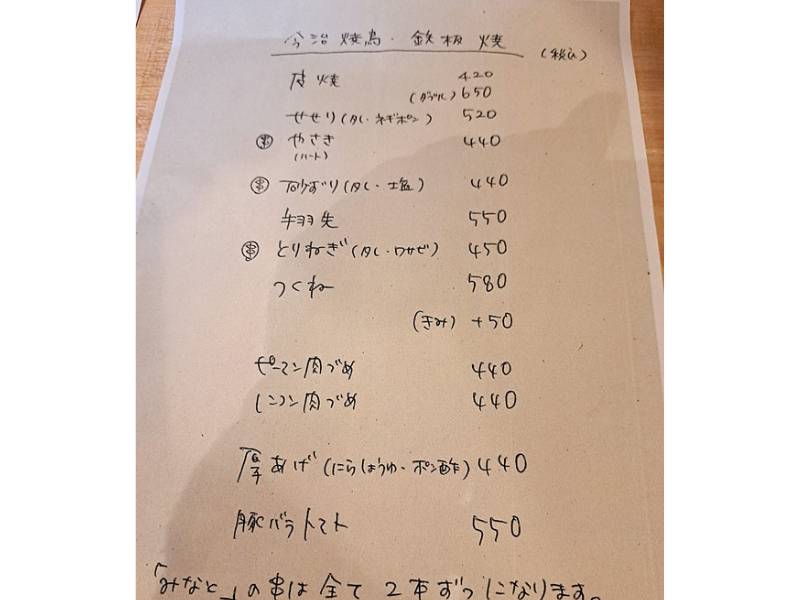 今治焼鳥・鉄板焼
(税込)
皮焼 420
(ダブル) 650
せせり(タレ・ネギポン) 520
串 やさき 440
(ハート)
串 砂ずり(タレ・塩) 440
手羽先 550
串 とりねぎ(タレ・ワサビ) 450
つくね 580
(きみ) +50
ピーマン肉づめ 440
レンコン肉づめ 440
厚あげ(にらしょうゆ・ポン酢) 440
豚バラトマト 550
「みなと」の串は全て2本ずつになります。